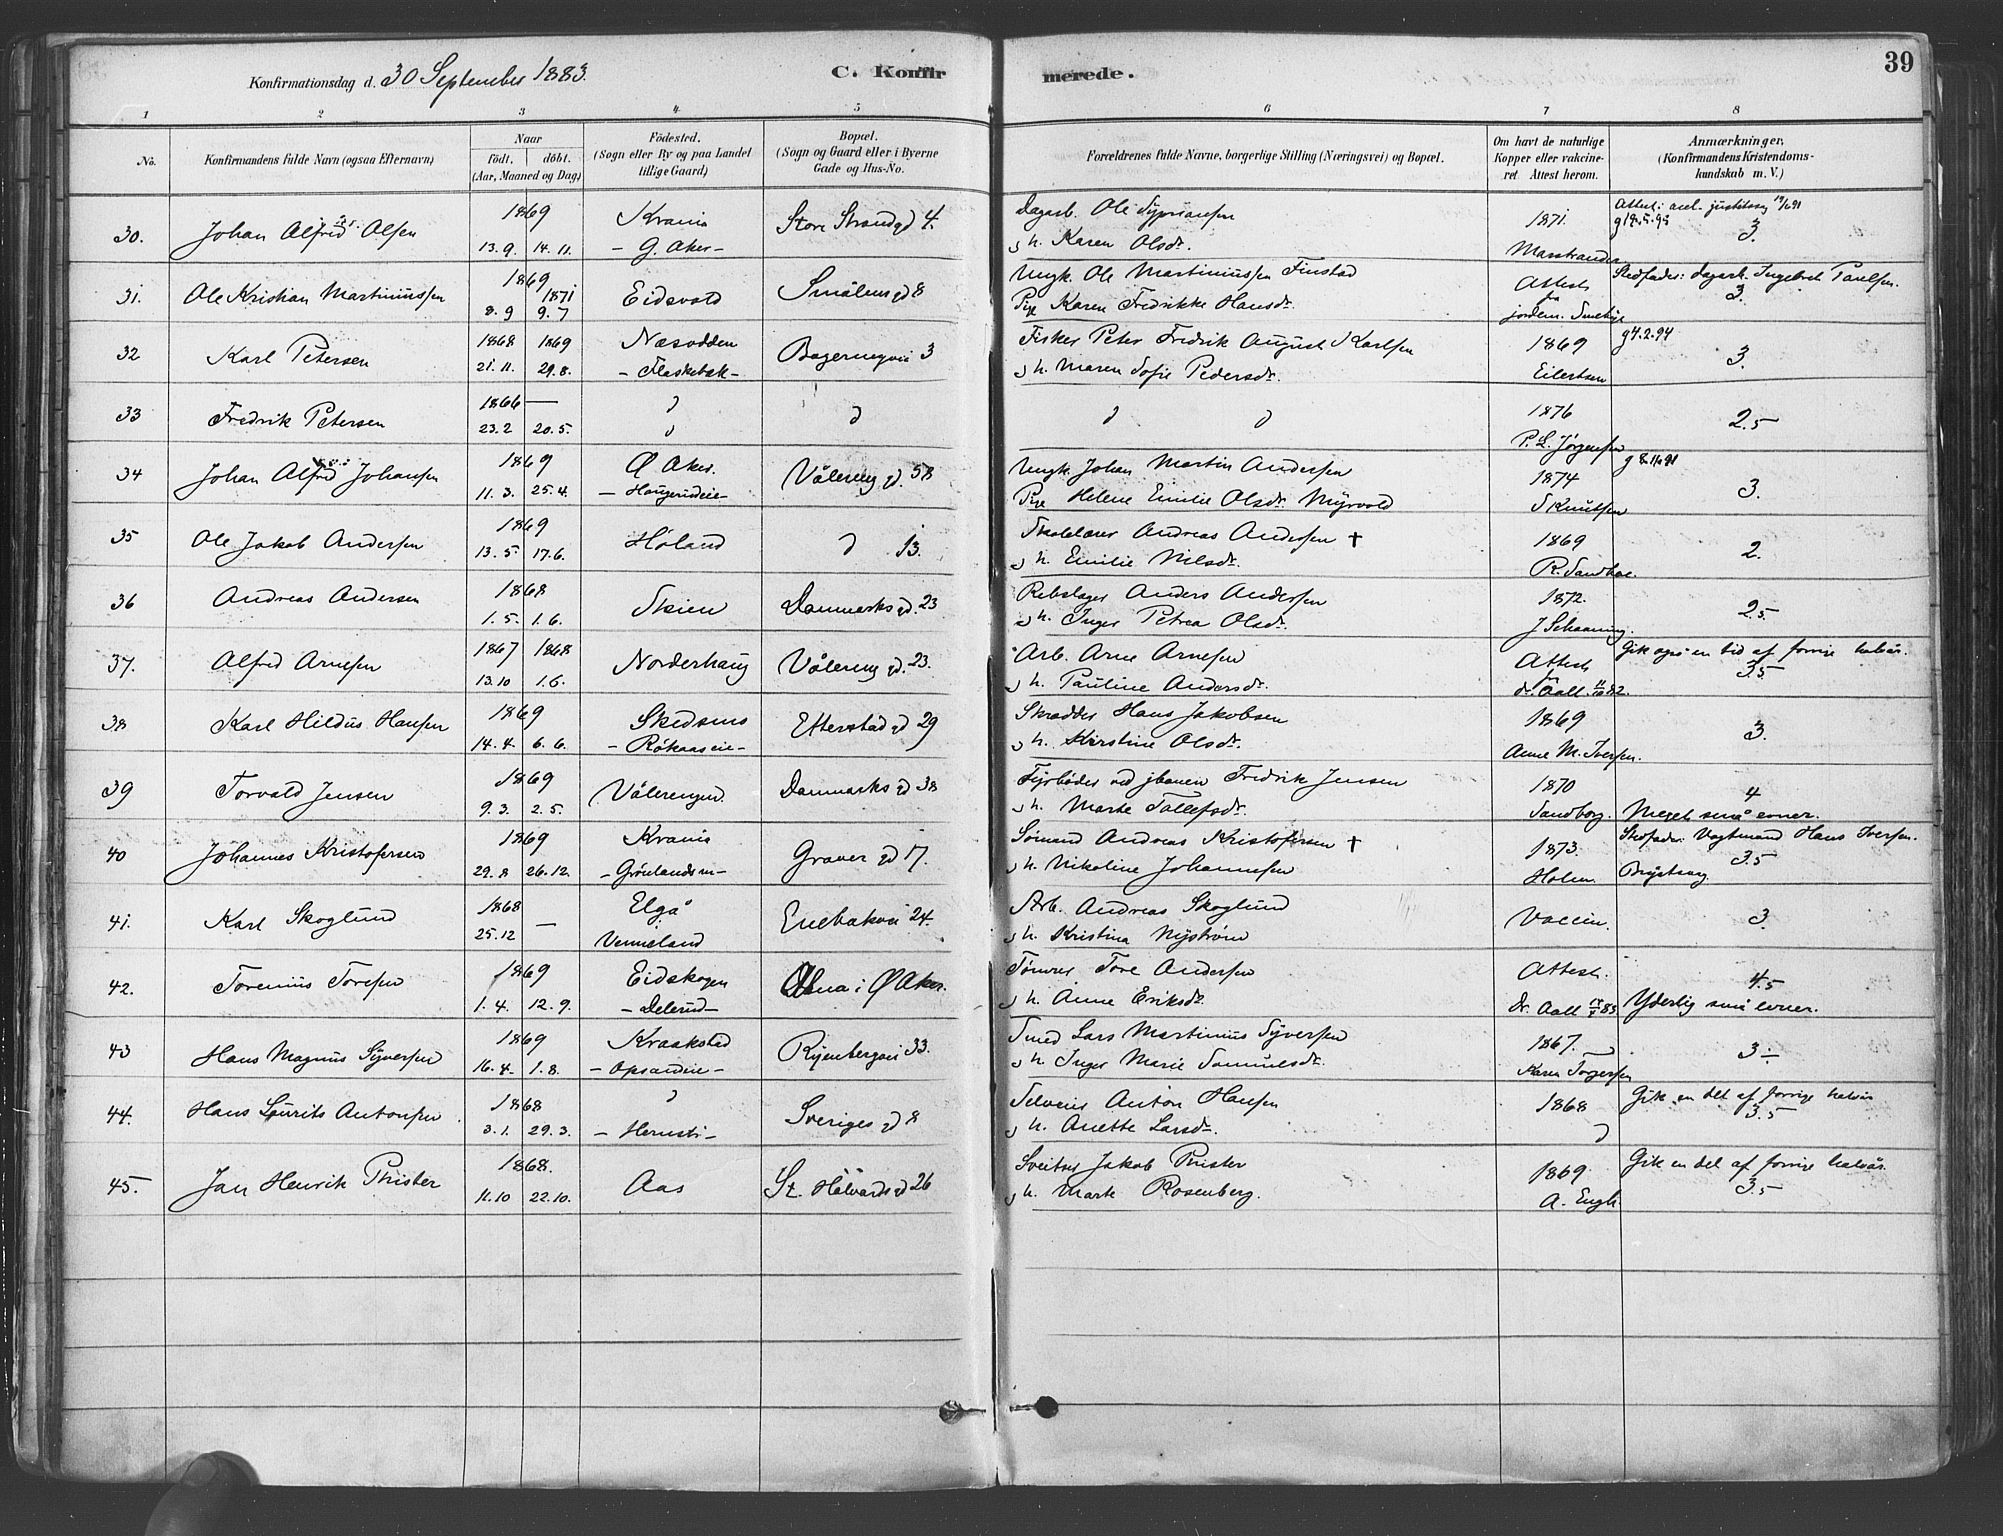 Konfirmationsdag d. 30 September 1883.
C. Konfirmerede.
39
1 2 3 4 5 6 7 8
No.
Konfirmandens fulde Navn (ogsaa Efternavn)
Naar
födt. döbt.
(Aar, Maaned og Dag)
Födested.
(Sogn eller By og paa Landet
tillige Gaard)
Bopæl.
(Sogn og Gaard eller i Byerne
Gade og Hus-No.
Forældrenes fulde Navne, borgerlige Stilling (Næringsvei) og Bopæl.
Om havt de naturlige
Kopper eller vakcine-
ret Attest herom.
Anmærkninger.
(Konfirmandens Kristendoms-
kundskab m. V.)
30. Johan Alfred Olsen 1869 Krania Store Strandgd 4. Dagarb. Ole Sypriansen 1871. Attest: 19/6 91
13.9. 14.11. - G. Aker - h. Karen Olsdr. Marstrander 3.
31. Ole Kristian Martiniussen 1869 1871 Eidsvold Smålensgd 8 Ungk. Ole Martiniussen Finstad Attest Stedfader: dagarb. Ingebret Paulsen.
8.9 9.7 Pige Karen Fredrikke Hansdr. fra jordem. 3.
32 Karl Petersen 1868 1869 Næsodden 3 Fisker Peter Fredrik August Karlsen 1869 g 4.2.94
21.11. 29.8. - Flaskebæk - h. Maren Sofie Pedersdr. Eilertsen 3.
33 Fredrik Petersen 1866 — 1876 2.5
23.2 20.5. P. L. Jørgensen
34 Johan Alfred Johansen 1869 Ø Aker. Vålereng gd. 58 Ungk. Johan Martin Andersen 1874
11.3. 25.4. - Haugerudeie - Pige Helene Emilie Olsdr. Myrvold S Knutsen 3.
35 Ole Jakob Andersen 1869 Høland 13. Skolelærer Andreas Andersen † 1869 2.
13.5. 17.6. h. Emilie Nilsdr.
36 Andreas Andersen 1868 Skien Danmarks gd 23 Rebslager Anders Andersen 1872. 2.5
1.5. 1.6. h. Inger Petrea Olsdr. J Schaaning.
37. Alfred Arnesen 1867 1868 Norderhaug Vålereng gd. 23. Arb. Arne Arnesen Attest Gik også en tid af forrige halvår.
13.10 1.6. h. Pauline Andersdr. fra dr. Aall. 3.5
38 Karl Hildus Hansen 1869 Skedsmo Etterstad gd 29 Skrædder Hans Jakobsen 1869 3.
14.4. 6.6. - Råkaaseie - h. Kirstine Olsdr. Anne M. Iversen.
39 Torvald Jensen 1869 Vålerengen. Danmarks gd 38 Fyrbøder ved jbanen Fredrik Jensen 1870 4
9.3. 2.5. h. Marte Tollefsdr. Sandborg. Meget små evner.
40 Johannes Kristofersen 1869 Krania Graver gd 17. Sømand Andreas Kristofersen † 1873. Stedfader: Vagtmand Hans Iversen.
29.8 26.12. - Grønlands m - h. Nikoline Johannesen Holm. 3.5
41. Karl Skoglund 1868 Elgå Enebakvei 24. Arb. Andreas Skoglund Vaccin. 3.
25.12 — Vermeland h. Kristina Nyström
42. Torenius Toresen 1869 Eidskogen Alna i Ø Aker. Tømrer Tore Andersen Attest. 4.5
1.4. 12.9. - Delerud - h. Anne Eriksdr. Dr. Aall Yderlig små evner.
43 Hans Magnus Syversen 1869 Kraakstad Ryenbergvei 33. Smed Lars Martinius Syversen 1867. 3 ÷
16.4. 1.8. - Opsandeie - h. Inger Marie Samuelsdr. Karen Torgersen
44. Hans Laurits Antonsen 1868 Sveriges gd 8 Selveier Anton Hansen 1868 Gik en del af forrige halvår
3.1. 29.3. h. Anette Larsdr. 3.5
45. Jan Henrik Phister 1868. Aas St. Halvards gd 26 Sveitser Jakob Phister 1869. Gik en del af forrige halvår.
11.10 22.10. h. Marte Rosenberg. A. Engh. 3.5